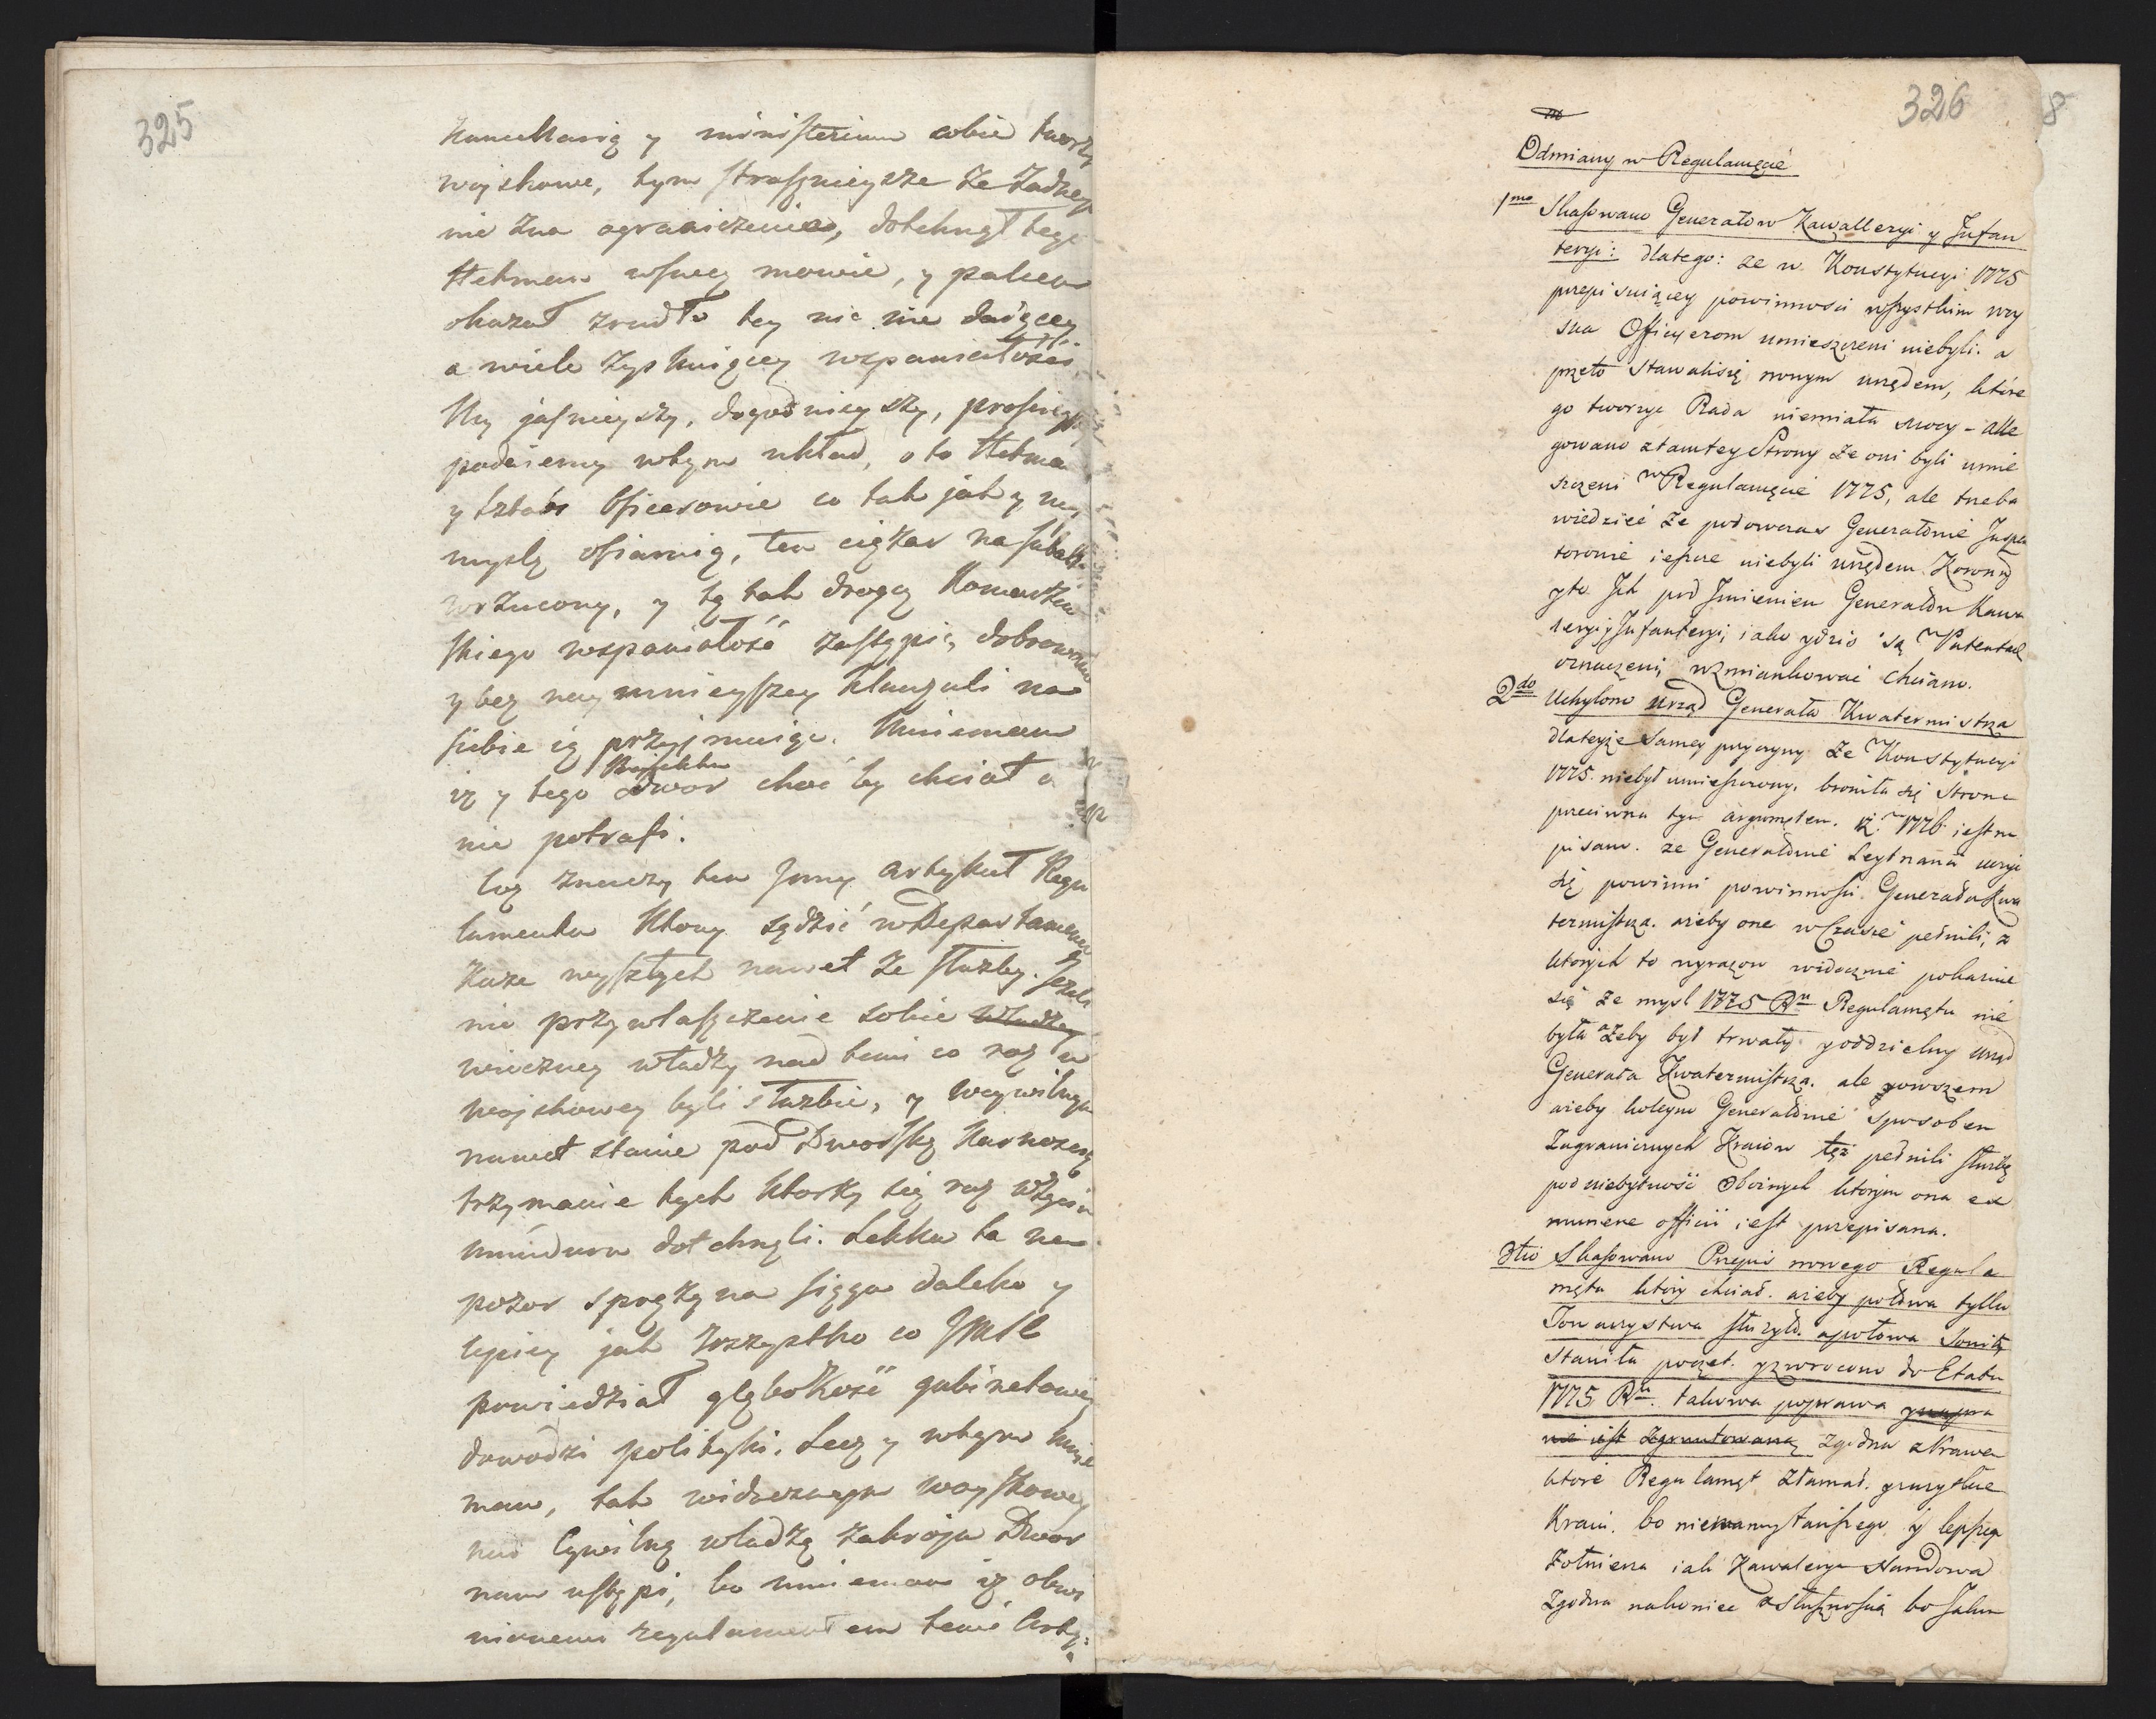 325
Kancellarią y ministerium sobie tworzy
woyskowe, tym straszneysze że żadnego
nie zna ograniczenia, dotchnął tego
Hetman wswey mowie, y palcem
okazał zrudło tey nic nie daiącey
a wiele zyskuiącey wspaniałości,
My jasnieyszy, dogodnieyszy, prosciejszy
podaiemy wtym układ, o to Hetman
y sztabs Oficerowie co tak jak y my
myslą ofiaruią, ten ciężar na
wrzucony, y tę tak drogą
skiego wspaniałość zastąpić, dobrowolnie
y bez naymnieyszey klauzuli na
siebie ią przyjmuiąc. Mniemam
iż y tego Dwor choć by chciał
nie potrafi.
Coż znaczy ten Jnny Artykuł Regu
lamentu ktory sądzić w Departamencie
Każe wyszłych nawet ze służby. Jezeli
nie przywłaszczenie sobie władzy
wieczney władzy nad temi co raz w
woyskowey byli służbie, y w cywilnym
nawet stanie pod Dworską karnością
trzymanie tych ktorzy się raz wżyciu
munduru dotchnęli. Lekka ta na
pozor sprężyna sięga daleko y
lepiey jak wszystko co JMść
powiedział głębokość gabinetowey
dowodzi polityki. Lecz y wtym mnie
mam, tak widocznym woyskowey
nad Cywilną władzą zakroju Dwor
nam ustąpi, bo mniemam iż obwi
nionemu regulamentem temi Arty:
326
8
Odmiany w Regulamęcie
1mo Skasowano Generałow Kawalleryi y Jnfan
teryi: dlatego: ze w Konstytucyi 1775
przepisuiącey powinnosci wszystkim woy
ska Officyerom umieszczeni niebyli. a
przęto stawalisię nowym urzędem, które
go tworzyc Rada niemiała mocy - alle
gowano ztamtey Strony że oni byli umie
szczeni w Regulamęcie 1775, ale trzeba
wiedzieć że podowczas Generałowie Jnspek
torowie ieszcze niebyli urzędem Koronny
y to Jch pod Jmieniem Generałow Kawa
leryi y Jnfanteryi, iako gdzie są w Patentach
oznaczeni, wzmiankować chciano.
2do Uchylono Urząd Generała Kwatermistrza
dlateyże samey przyczyny że w Konstytucyi
1775. niebył umieszczony. broniła się Strona
przeciwna tym argumętem. iż w 1776 iest na
pisano. ze Generałowie Leytnanci uczyć
się powinni powinnosci Generała Kwa
termistrza. ażeby one w Czasie pełnili, z
ktorych to wyrazow widocznie pokazuie
się że mysl 1775 Ru Regulamętu nie
była ażeby był trwały y oddzielny urząd
Generała Kwatermistrza. ale y owszem
ażeby koleyno Generałowie sposobem
Zagranicznych Kraiow tęż pełnili służbę
pod niebytność Oboznych ktorym ona ex
munere officii iest przepisana.
3tio Skasowano Przepis nowego Regula
mętu ktory chciał. ażeby połowa tylko
Towarzystwa służyło. a połowa
Stawiła poczet. y zwrocono do Etatu
1775 Ru. takowa poprawa
nie iest Zgruntowaną, Zgodna z Prawem
ktore Regulamęt złamał.
Kraiu. bo niemamy tańszego y lepszego
Zołnierza iak Kawalerya Narodowa
Zgodna nakoniec z słusznością bo